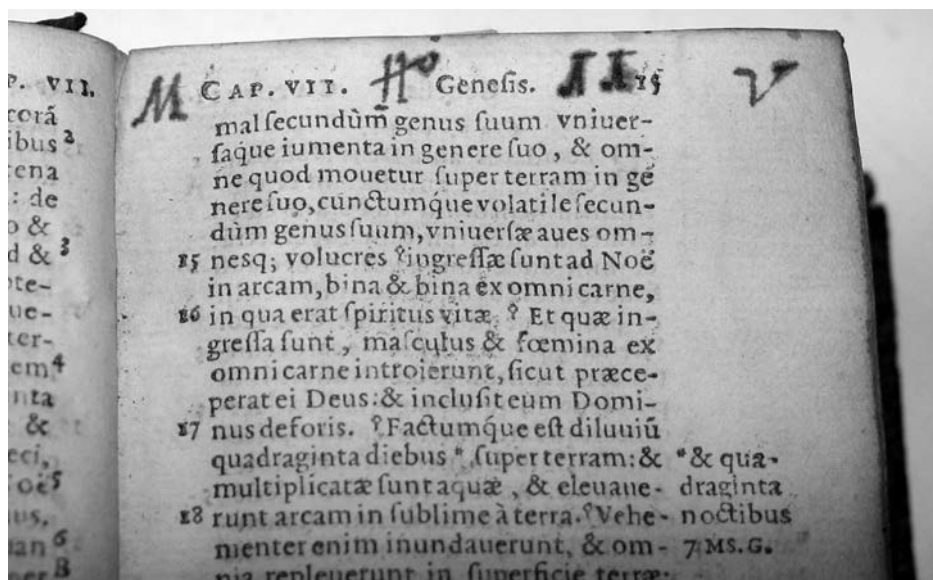 P. VII.
corã
ibus 2
ena
: de
o &
d & 3
ote-
ue-
ter-
em 4
nta
&
eci,
oë 5
nus,
ian 6
per B
M CAP. VII. Ho Genesis. II 15 V
mal secundùm genus suum vniuer-
saque iumenta in genere suo, & om-
ne quod mouetur super terram in gé
nere suo, cunctumque volatile secun-
dùm genus suum, vniuersæ aues om-
15 nesq; volucres ˤingressæ sunt ad Noë
in arcam, bina & bina ex omni carne,
16 in qua erat spiritus vitæ. ˤ Et quæ in-
gressa sunt, masculus & fœmina ex
omni carne introierunt, sicut præce-
perat ei Deus: & inclusit eum Domi-
17 nus deforis. ˤFactumque est diluuiũ
quadraginta diebus * super terram: &
multiplicatæ sunt aquæ, & eleuaue-
18 runt arcam in sublime à terra. ˤVehe-
menter enim inundauerunt, & om-
nia repleuerunt in superficie terræ:
*& qua-
draginta
noctibus
7 MS. G.